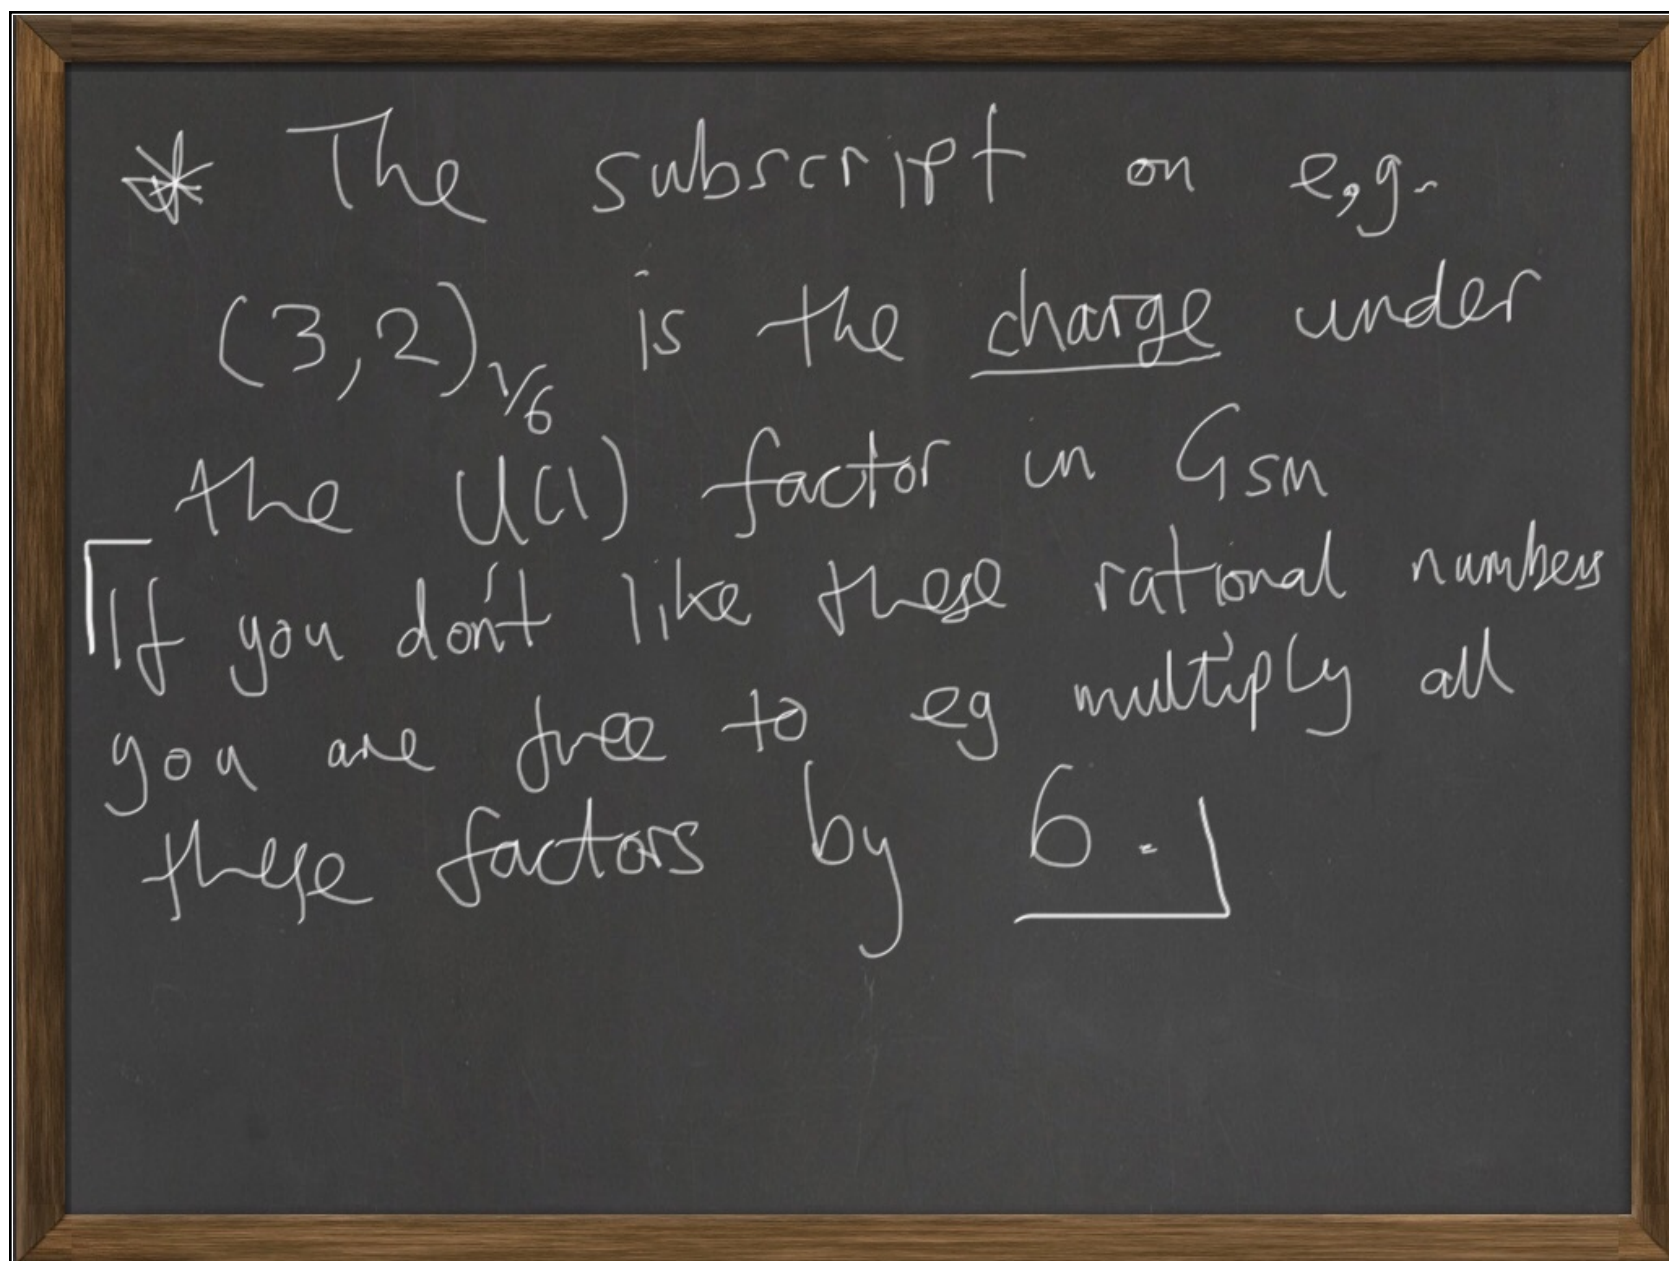 * The subscript on e.g.
(3,2)_{1/6} is the charge under
the U(1) factor in G_{SM}
If you don't like these rational numbers
you are free to eg multiply all
these factors by 6.